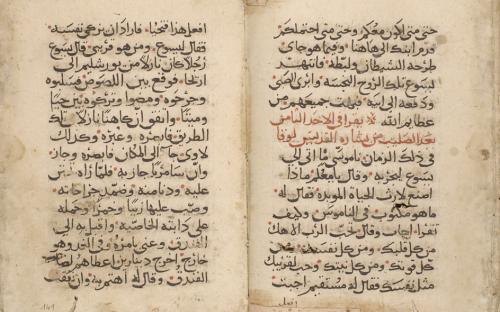 حتى متى اكون معكم وحتى متى احتملكم
قدم ابنك الى هاهنا وفيما هو جاي
طرحه الشيطان ولبطه فانتهر
يسوع تلك الروح النجسة وابرى الصبي
ودفعه الى ابيه فبهت جميعهم من
عظايم الله يقرا في الاحد الثامن
بعد الصليب من بشارة القديس لوقا
في ذلك الزمان ناموسي ما اتى الى
يسوع ليجربه وقال يا معلم ماذا
اصنع لارث الحياة الموبدة فقال له
ما هو مكتوب في الناموس وكيف
تقرا اجاب وقال تحب الرب الاهك
من كل قلبك ومن كل نفسك ومن
كل قوتك ومن كل نيتك وحب لقريبك
مثل نفسك فقال له مستقيم اجبت
افعل
افعل هذا فتحيا فاراد ان يزكي نفسه
فقال ليسوع ومن هو قريبي قال يسوع
رجلا كان نازلا من يورشليم الى
اريحا فوقع بين اللصوص فسلبوه
وجرحوه ومضوا وتركوه بين حيا
وميتا واتفق ان كاهنا نازلا تلك
الطريق فابصره وعبره وكذلك
لاوي جا الى المكان فابصره وجاز
وان سامريا جاز به فلما راه تحنن
عليه ودنا منه وضمد جراحاته
وصب عليها زيتا وخمرا وحمله
على دابته الخاصية واقبل به الى
الفندق وعنى بامره وفي الغد وهو
خارج اخرج دينارين اعطاهما
الفندق وقال له اهتم به وان